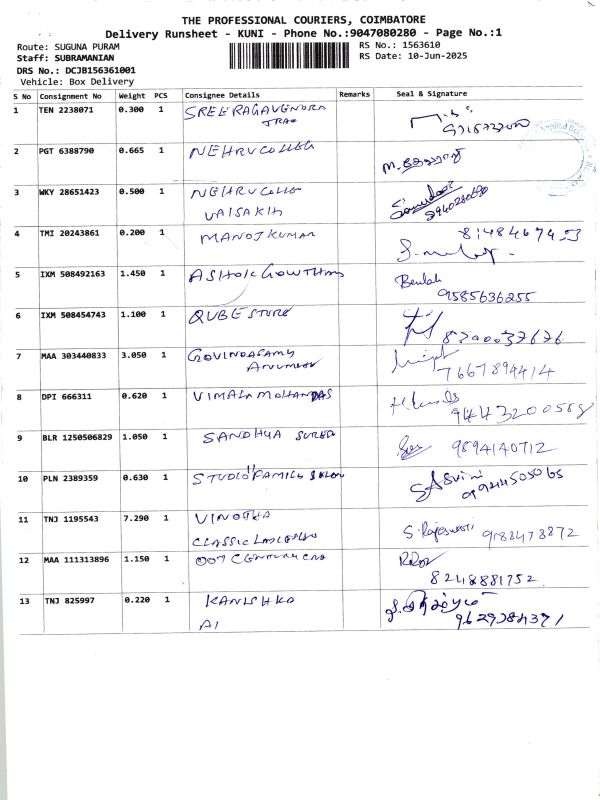 THE PROFESSIONAL COURIERS, COIMBATORE
Delivery Runsheet - KUNI - Phone No.:9047080280 - Page No.:1
Route: SUGUNA PURAM RS No.: 1563610
Staff: SUBRAMANIAN RS Date: 10-Jun-2025
DRS No.: DCJB156361001
Vehicle: Box Delivery
S No Consignment No Weight PCS Consignee Details Remarks Seal & Signature
1 TEN 2238071 0.300 1 SREERAGAVENDRA
2 PGT 6388790 0.665 1 NEHRU COLLEG
3 WKY 28651423 0.500 1 NEHRU COLLG
VAISAKH
4 TMI 20243861 0.200 1 MANOJ KUMAR
5 IXM 508492163 1.450 1 ASHOK GOWTHAM Beulah
9585636255
6 IXM 508454743 1.100 1 QUBE STORE
7 MAA 303440833 3.050 1 GOVINDASAMY
7667894414
8 DPI 666311 0.620 1 VIMALA MOHANDAS
9 BLR 1250506829 1.050 1 SANDHYA 9894140712
10 PLN 2389359 0.630 1 STUDIO FAMILY SALON
11 TNJ 1195543 7.290 1 VINOTHA
CLASSIC S. Rajeswari
12 MAA 111313896 1.150 1
8248881752
13 TNJ 825997 0.220 1 KANISHKA
AI